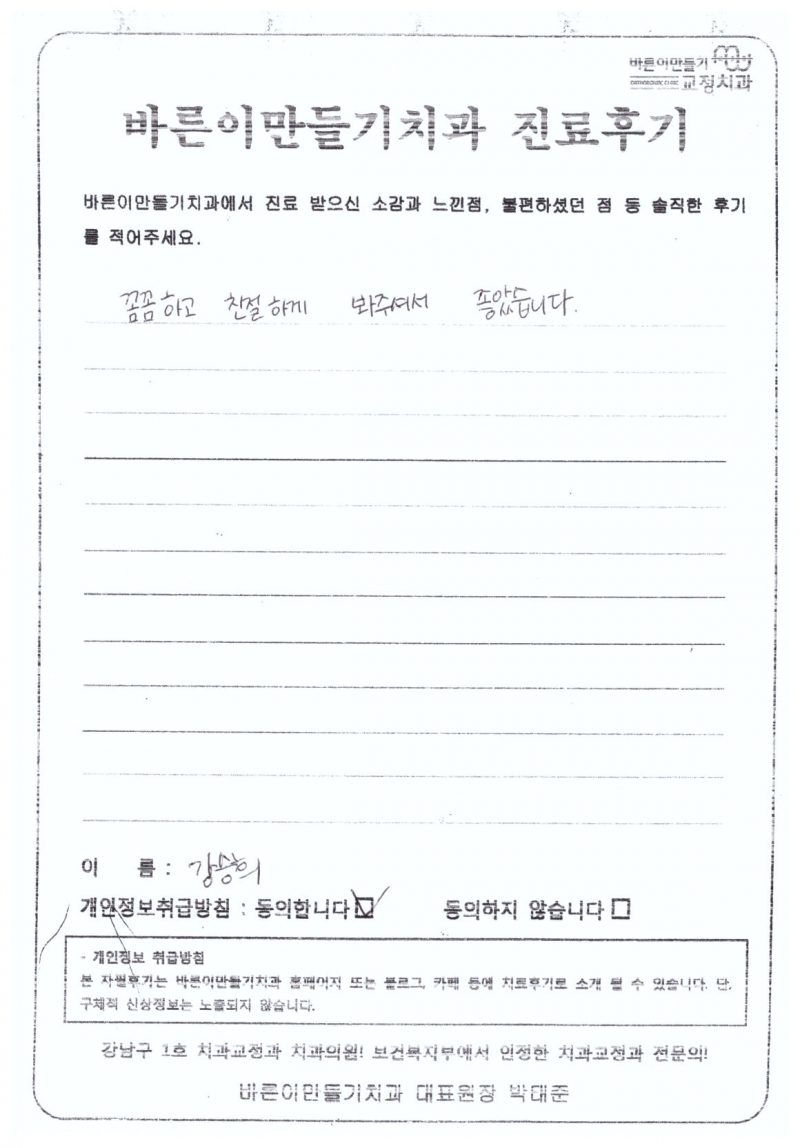 바른이만들기
교정치과
바른이만들기치과 진료후기
바른이만들기치과에서 진료 받으신 소감과 느낀점, 불편하셨던 점 등 솔직한 후기
를 적어주세요.
꼼꼼하고 친절하게 봐주셔서 좋았습니다.
이 름 : 강승희
개인정보취급방침 : 동의합니다 ☑ 동의하지 않습니다 □
- 개인정보 취급방침
본 자필후기는 바른이만들기치과 홈페이지 또는 블로그, 카페 등에 치료후기로 소개 될 수 있습니다. 단,
구체적 신상정보는 노출되지 않습니다.
강남구 1호 치과교정과 치과의원! 보건복지부에서 인정한 치과교정과 전문의!
바른이만들기치과 대표원장 박대준